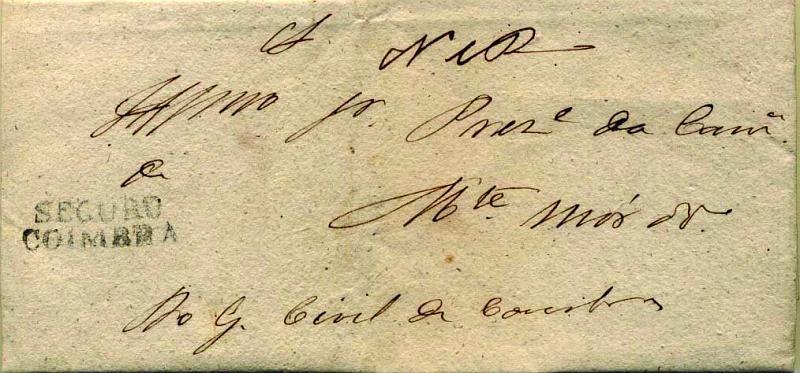 S. N e R
Illmo Sr. Preze da Camª
de
SEGURO
COIMBRA
Mte Mór o V.
Do G. Civil de Coimbra